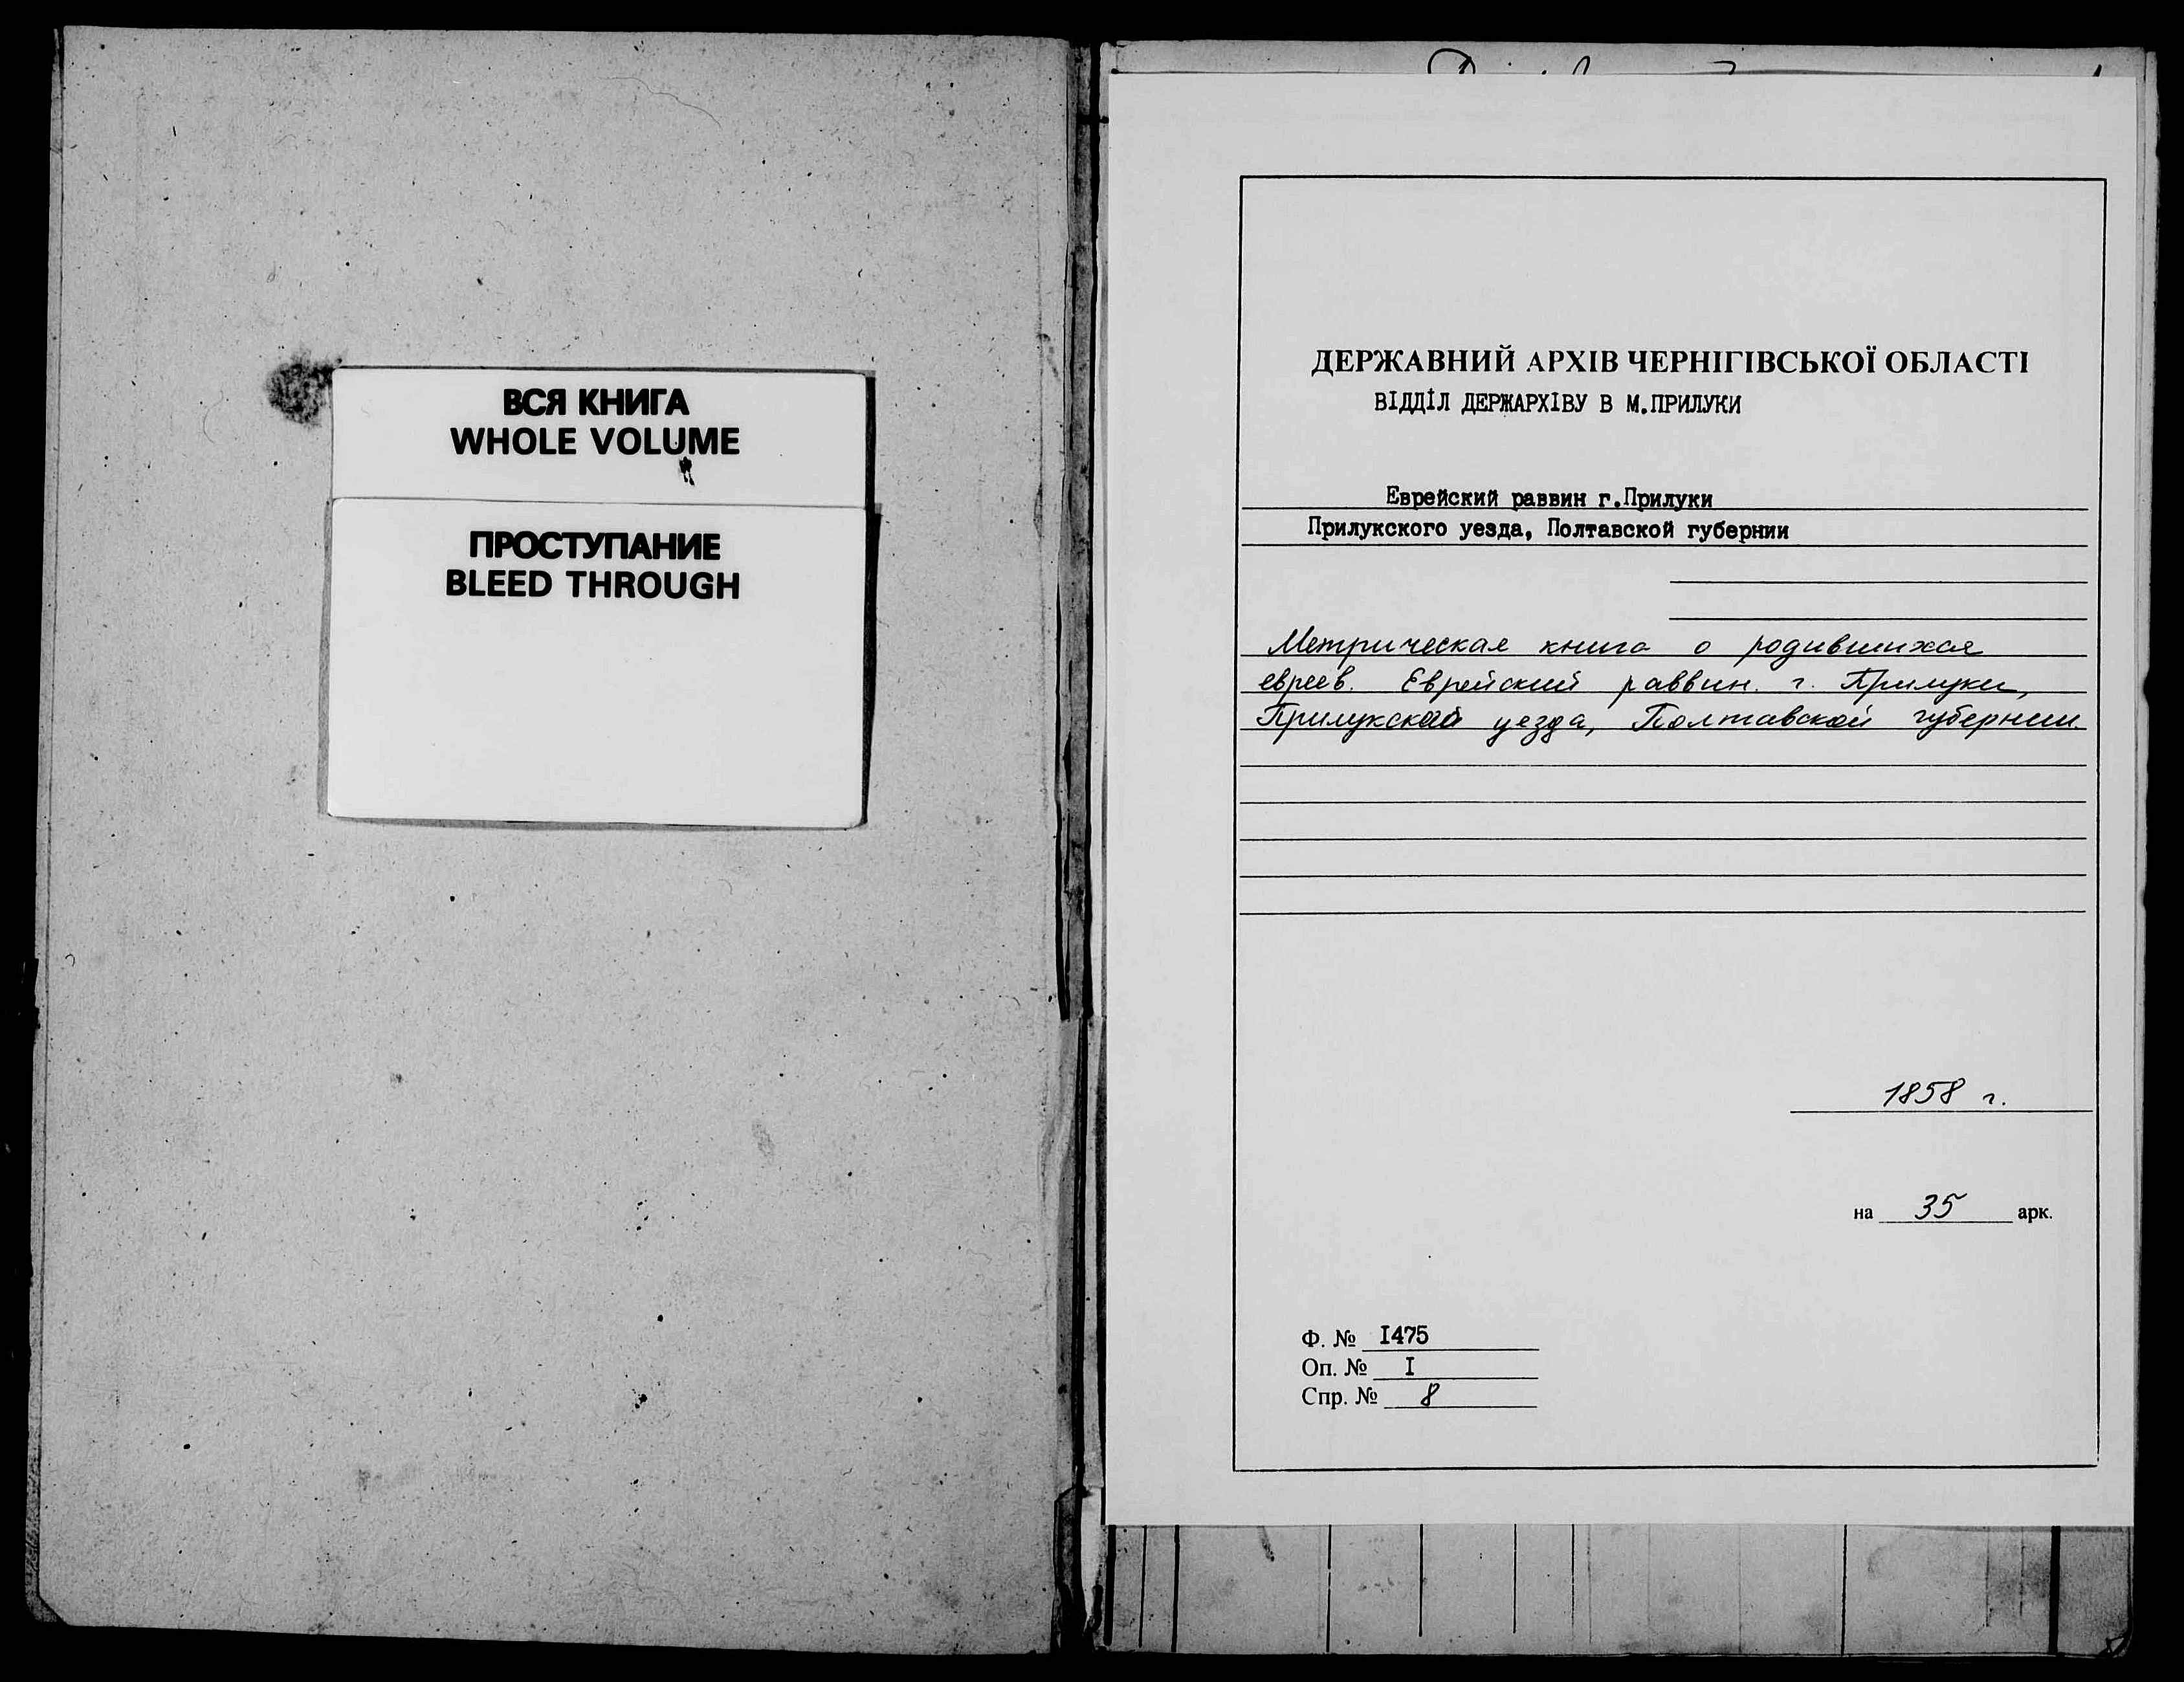 ВСЯ КНИГА
WHOLE VOLUME
ПРОСТУПАНИЕ
BLEED THROUGH
ДЕРЖАВНИЙ АРХІВ ЧЕРНІГІВСЬКОЇ ОБЛАСТІ
ВІДДІЛ ДЕРЖАРХІВУ В М.ПРИЛУКИ
Еврейский раввин г.Прилуки
Прилукского уезда, Полтавской губернии
Метрическая книга о родившихся
евреев. Еврейский раввин. г. Прилуки,
Прилукской уезда, Полтавской губернии.
1858 г.
на 35 арк.
Ф. № I475
Оп. № I
Спр. № 8